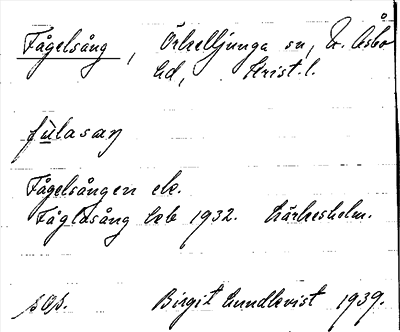 Fågelsång, Örkelljunga sn, N. Åsbo
hd, Krist. l.
fùlasaŋ
Fågelsången ek.
Fåglasång lrb 1932. Kärkesholm.
sOp. Birgit Lundkvist 1939.